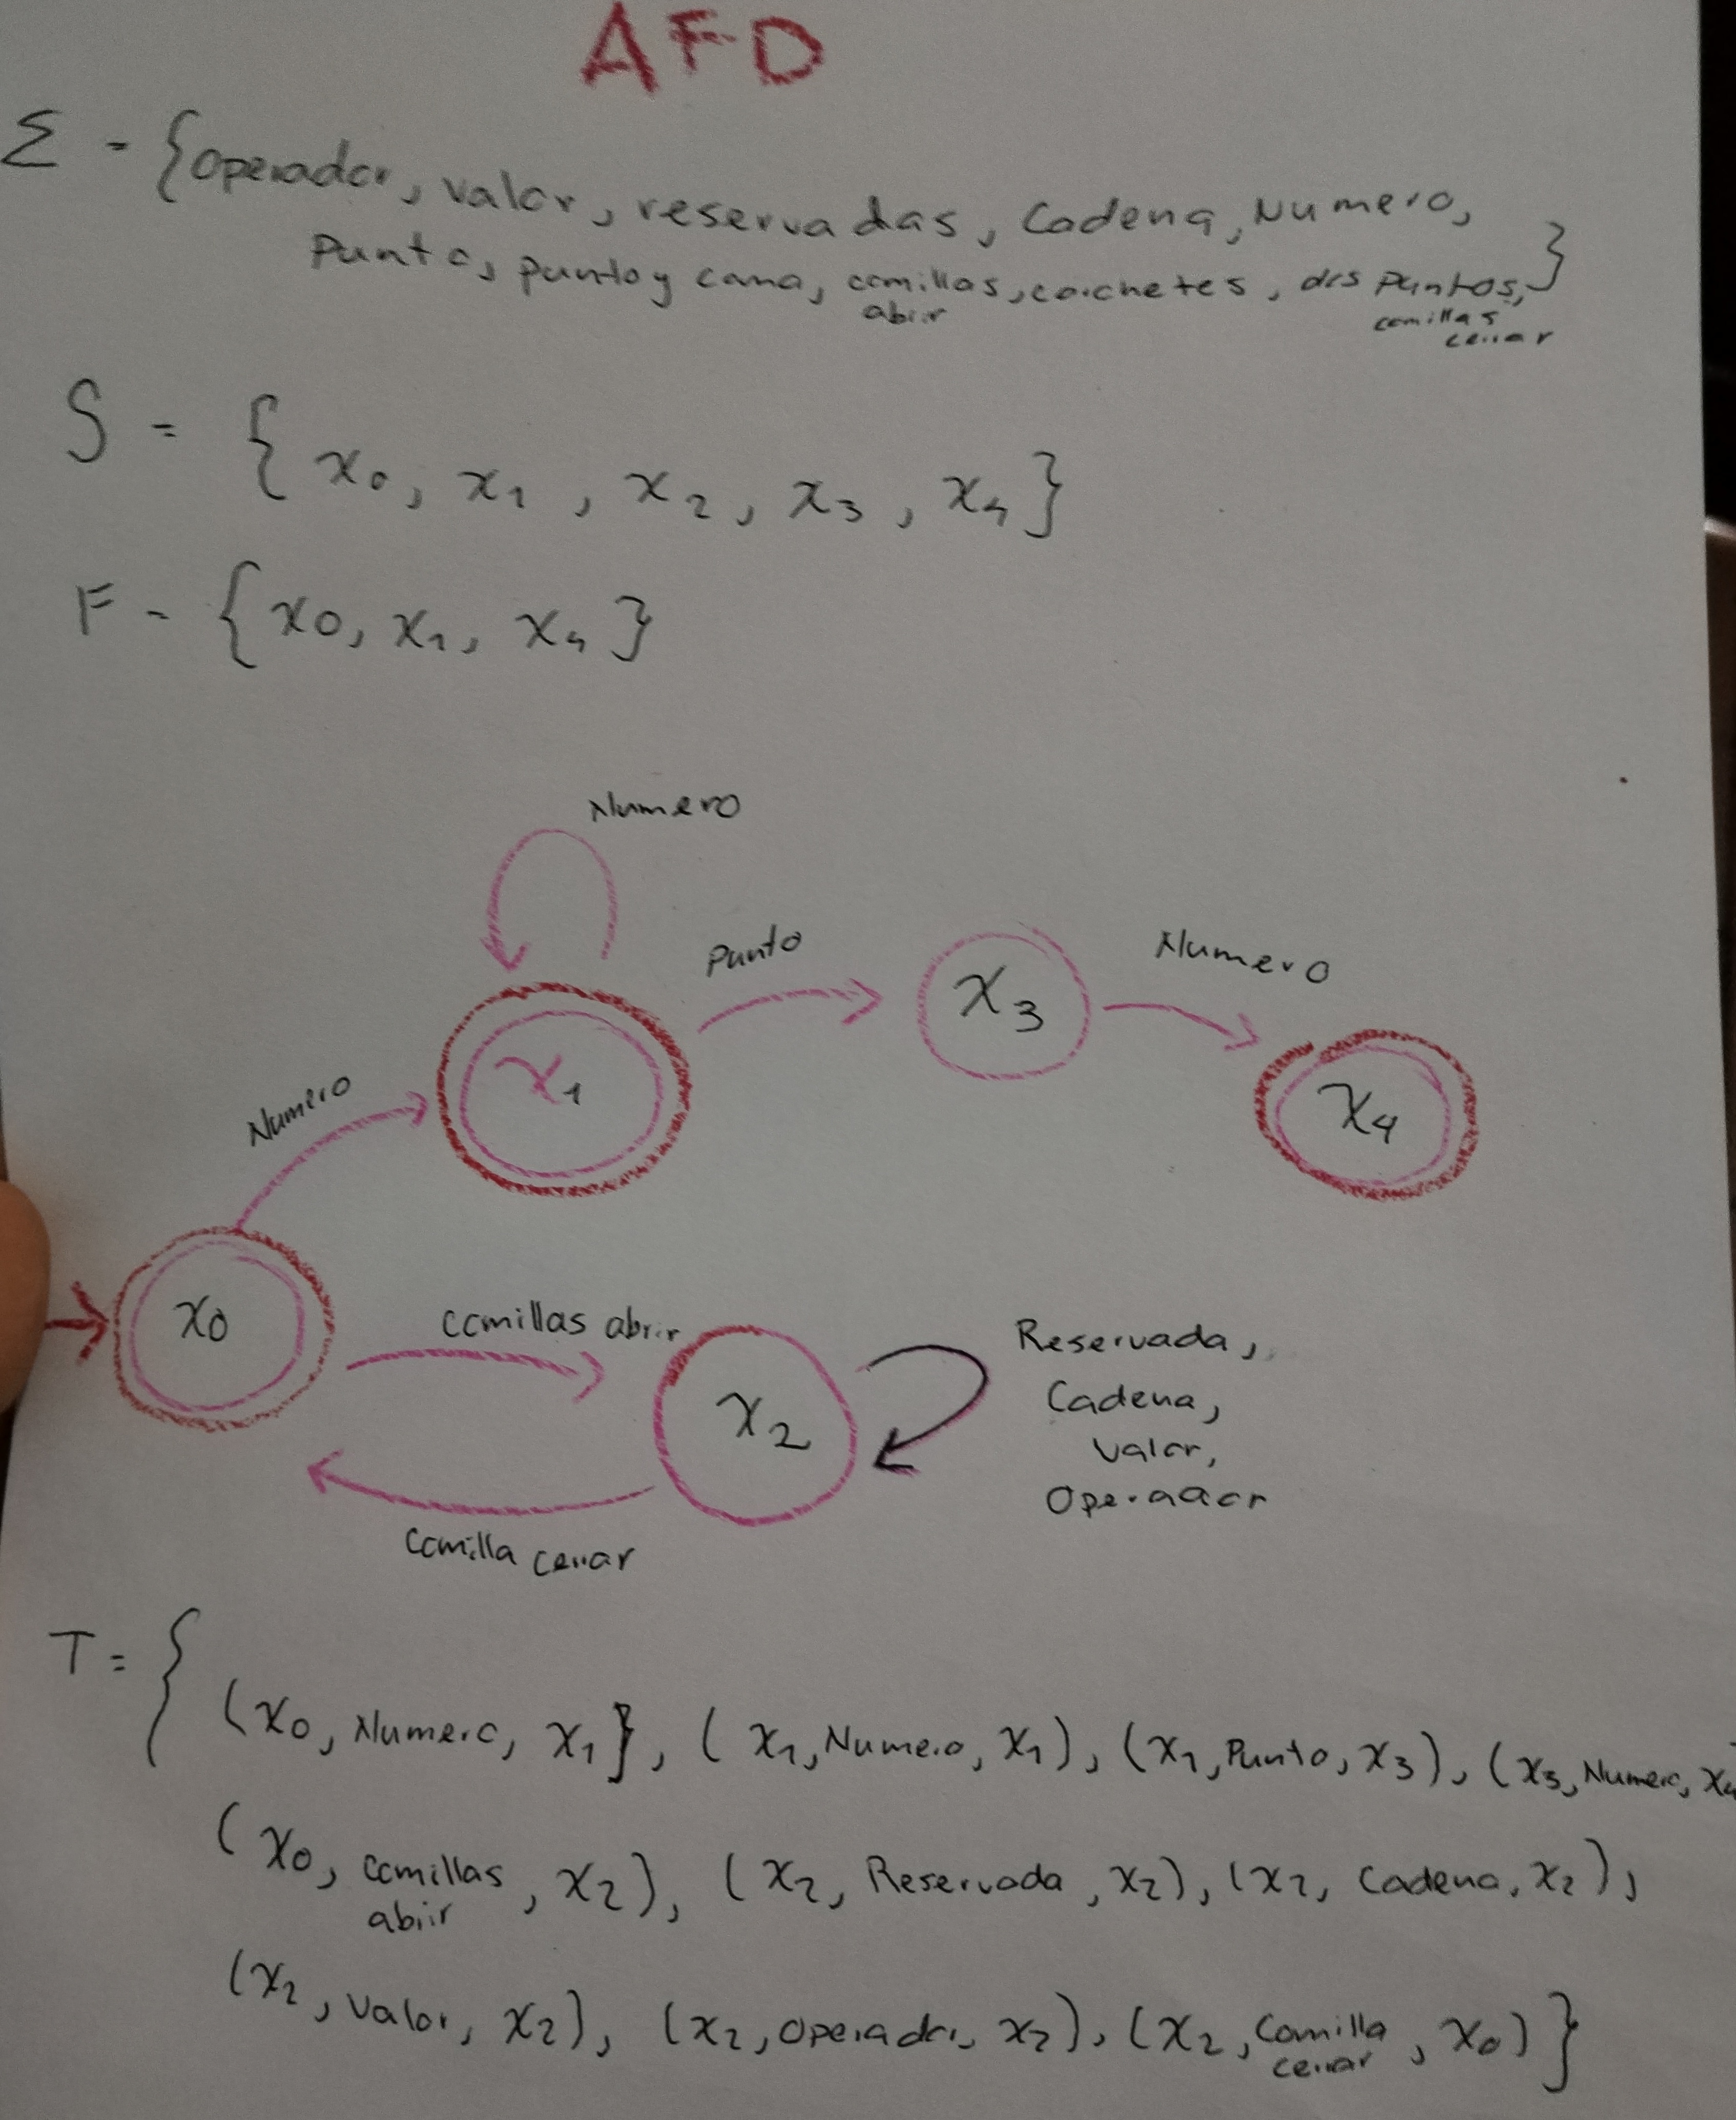 AFD
Σ = {operador, valor, reservadas, Cadena, Numero,
Punto, punto y coma, comillas, corchetes, dos puntos, }
abrir
comillas
cerrar
S = { x0, x1, x2, x3, x4 }
F = { x0, x1, x4 }
Numero
Punto
Numero
x3
x1
x4
Numero
x0
comillas abrir
x2
Reservada,
Cadena,
Valor,
Operador
Comilla cerrar
T = {
(x0, Numero, x1}, (x1, Numero, x1), (x1, Punto, x3), (x3, Numero, x4
(x0, comillas, x2), (x2, Reservada, x2), (x2, Cadena, x2),
abrir
(x2, Valor, x2), (x2, Operador, x2), (x2, Comilla, x0) }
cerrar